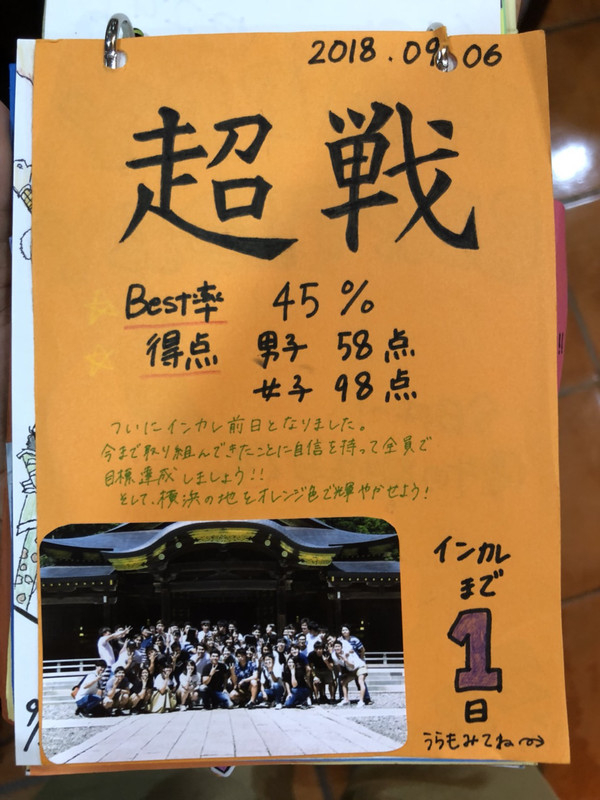 2018.09.06
超戦
Best率 45%
得点 男子 58点
女子 98点
ついにインカレ前日となりました。
今まで取り組んできたことに自信を持って全員で
目標達成しましょう!!
そして、横浜の地をオレンジ色で輝やかせよう!
インカレ
まで
1
日
うらもみてね